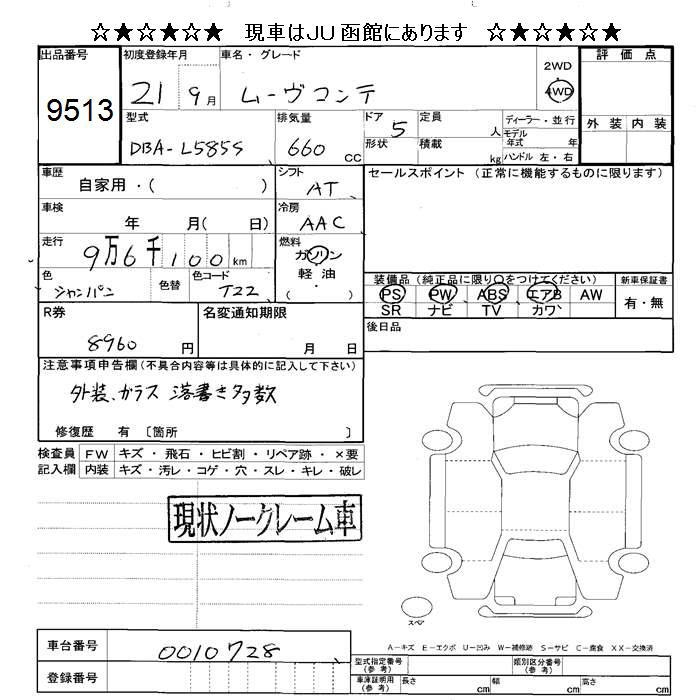 ☆★☆★☆★ 現車はJU函館にあります ☆★☆★☆★
出品番号 初度登録年月 車名・グレード 2WD 評価点
9513 21 9月 ムーヴコンテ 4WD
型式 排気量 ドア 定員 ディーラー・並行 外装 内装
DBA-L585S 660 CC 5 人 モデル年式 年
形状 積載 kg ハンドル 左・右
車歴 自家用・( ) シフト AT セールスポイント (正常に機能するものに限ります)
車検 年 月( 日) 冷房 AAC
走行 9万6千100km 燃料 ガソリン
軽油
( ・ )
色 シャンパン 色替 色コード T22 装備品 (純正品に限り○をつけてください) 新車保証書
PS PW ABS エアB AW 有・無
SR ナビ TV カワ
R券 8960円 名変通知期限 月 日 後日品
注意事項申告欄(不具合内容等は具体的に記入して下さい)
外装、ガラス 落書き多数
修復歴 有 〔箇所 〕
検査員 FW キズ・飛石・ヒビ割・リペア跡・×要
記入欄 内装 キズ・汚レ・コゲ・穴・スレ・キレ・破レ
現状ノークレーム車
スペア
A-キズ E-エクボ U-凹み W-補修跡 S-サビ C-腐食 XX-交換済
車台番号 0010728
登録番号
型式指定番号(参考) 類別区分番号(参考)
車庫証明用(参考) 長さ cm 幅 cm 高さ cm